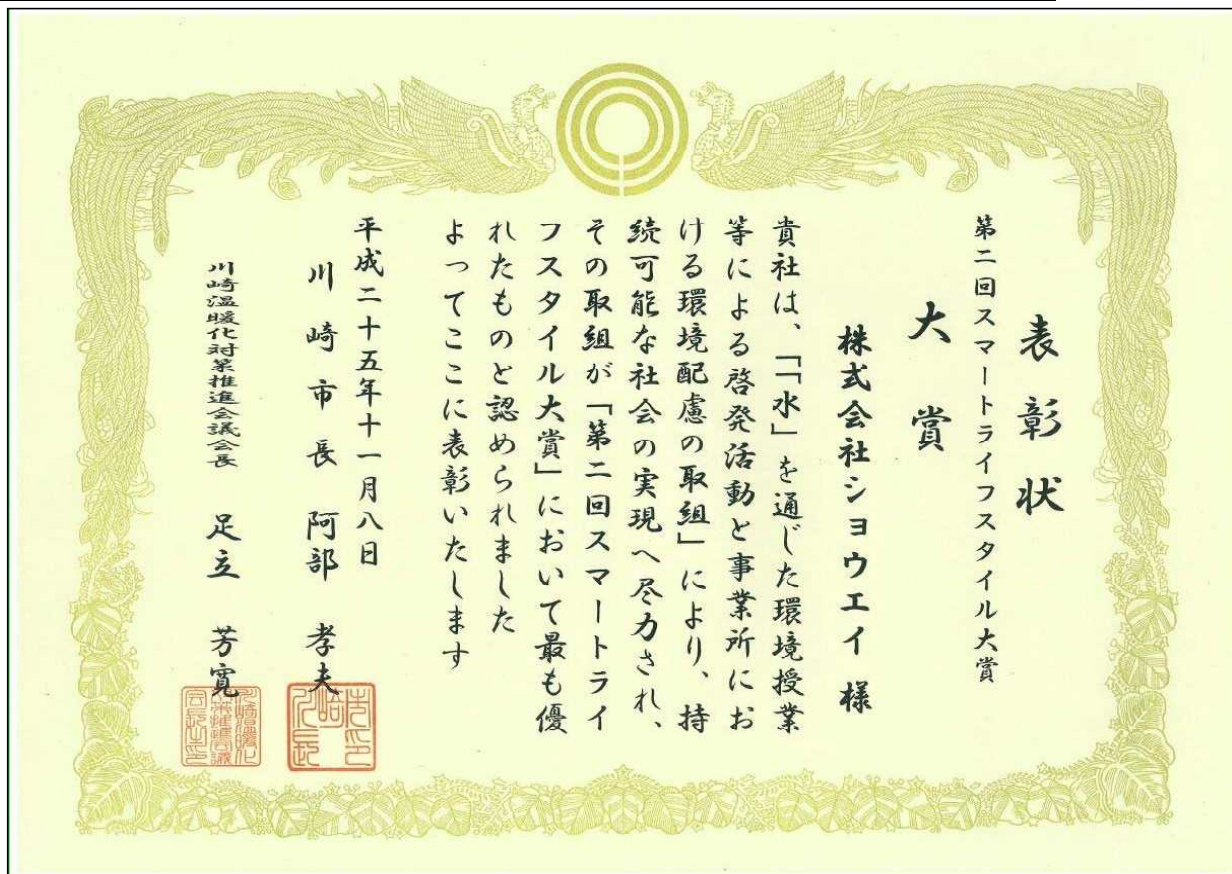 表彰状
第二回スマートライフスタイル大賞
大賞
株式会社ショウエイ様
貴社は、「「水」を通じた環境授業
等による啓発活動と事業所にお
ける環境配慮の取組」により、持
続可能な社会の実現へ尽力され、
その取組が「第二回スマートライ
フスタイル大賞」において最も優
れたものと認められました
よってここに表彰いたします
平成二十五年十一月八日
川崎市長 阿部 孝夫
川崎温暖化対策推進会議会長 足立 芳寛